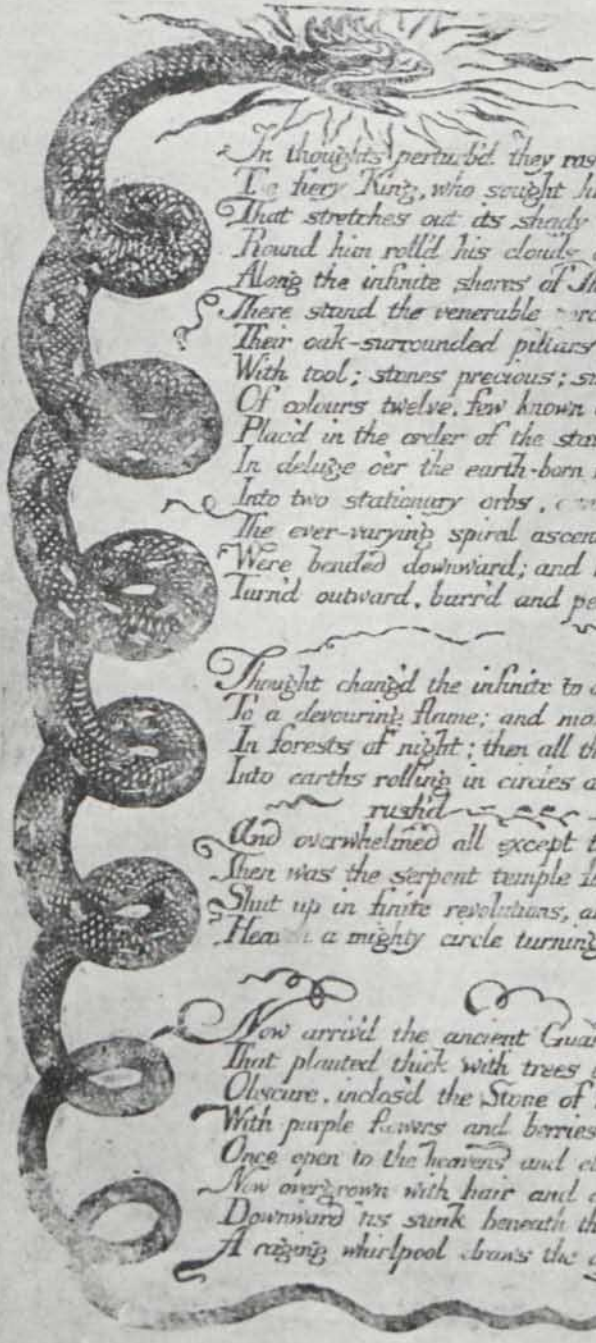 In thoughts perturb'd they
fiery King, who sought
That stretches out its shady
Round him roll'd his clouds
Along the infinite shores of
There stand the venerable
Their oak-surrounded pillars
With tool; stones precious;
Of colours twelve, few known
Plac'd in the order of the
In deluge o'er the earth-born
Into two stationary orbs,
The ever-varying spiral
Were bended downward; and
Turn'd outward, barr'd and
Thought chang'd the infinite to
To a devouring flame; and
In forests of night; then all
Into earths rolling in circles
rush'd
And overwhelmed all except
Then was the serpent temple
Shut up in finite revolutions,
a mighty circle turning
Now arriv'd the ancient
That planted thick with trees
Obscure, inclos'd the Stone of
With purple flowers and berries
Once open to the heavens and
Now overgrown with hair and
Downward 'tis sunk beneath
A raging whirlpool draws the